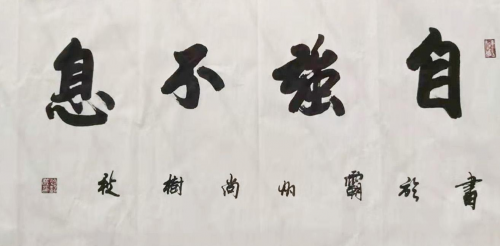 自強不息
書於霸州尚樹枝